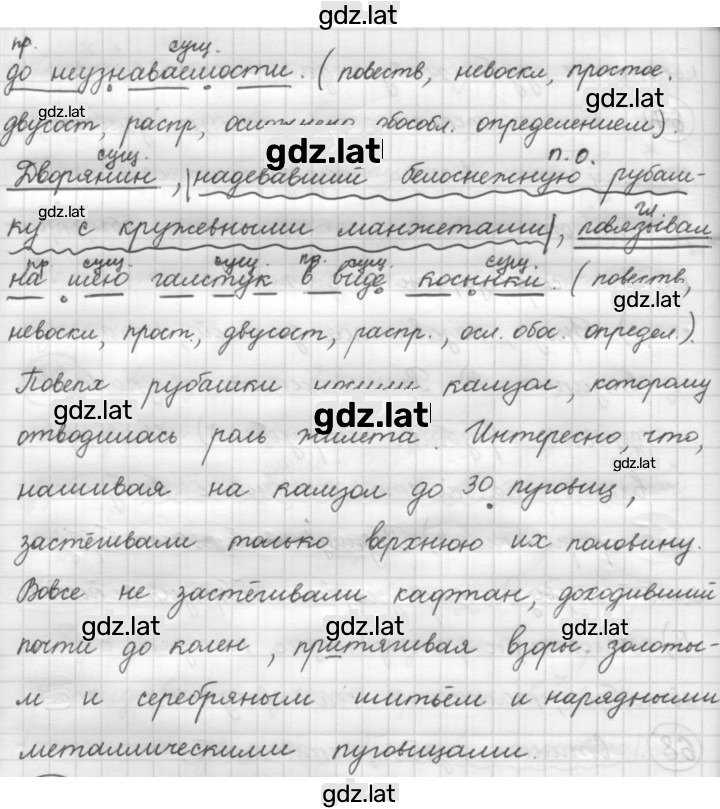 gdz.lat
пр. сущ.
до неузнаваемости. (повеств, невоскл, простое,
gdz.lat
gdz.lat
двусост, распр, обособл. определением).
gdz.lat
сущ. п.о.
Дворянин, |надевавший белоснежную рубаш-
gdz.lat
гл
ку с кружевными манжетами|, повязывал
пр сущ. сущ. пр. сущ. сущ.
на шею галстук в виде косынки. (повеств,
gdz.lat
невоскл, прост., двусост, распр., осл. обос. определ.).
Поверх рубашки камзол, которому
gdz.lat gdz.lat
отводилась роль жилета. Интересно, что,
gdz.lat
нашивая на камзол до 30 пуговиц,
застёгивали только верхнюю их половину.
Вовсе не застёгивали кафтан, доходивший
gdz.lat gdz.lat gdz.lat
почти до колен, притягивая взоры золоты-
м и серебряным шитьём и нарядными
металлическими пуговицами.
68
gdz.lat